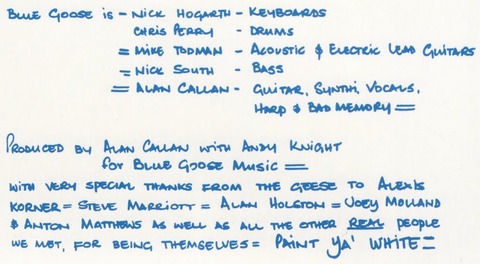 BLUE GOOSE IS - NICK HOGARTH - KEYBOARDS
CHRIS PERRY - DRUMS
= MIKE TODMAN - ACOUSTIC & ELECTRIC LEAD GUITARS
= NICK SOUTH - BASS
= ALAN CALLAN - GUITAR, SYNTHI, VOCALS,
HARP & BAD MEMORY =
PRODUCED BY ALAN CALLAN WITH ANDY KNIGHT
for BLUE GOOSE MUSIC =
WITH VERY SPECIAL THANKS FROM THE GEESE TO ALEXIS
KORNER = STEVE MARRIOTT = ALAN HOLSTON = JOEY MOLLAND
& ANTON MATTHEWS AS WELL AS ALL THE OTHER REAL PEOPLE
WE MET, FOR BEING THEMSELVES = PAINT YA' WHITE =